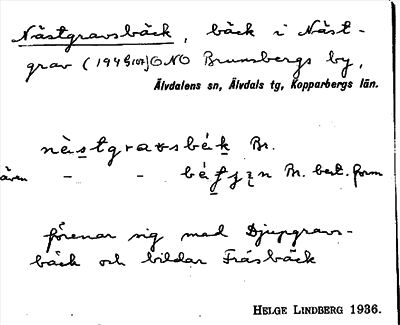 Nästgravsbäck, bäck i Näst-
grav (1945) ONO Brunnsbergs by,
Älvdalens sn, Älvdals tg, Kopparbergs län.
nèstgravsbék Br.
även - - Br. best. form
förenar sig med Djupgravs-
bäck och bildar Fräsbäck
HELGE LINDBERG 1936.